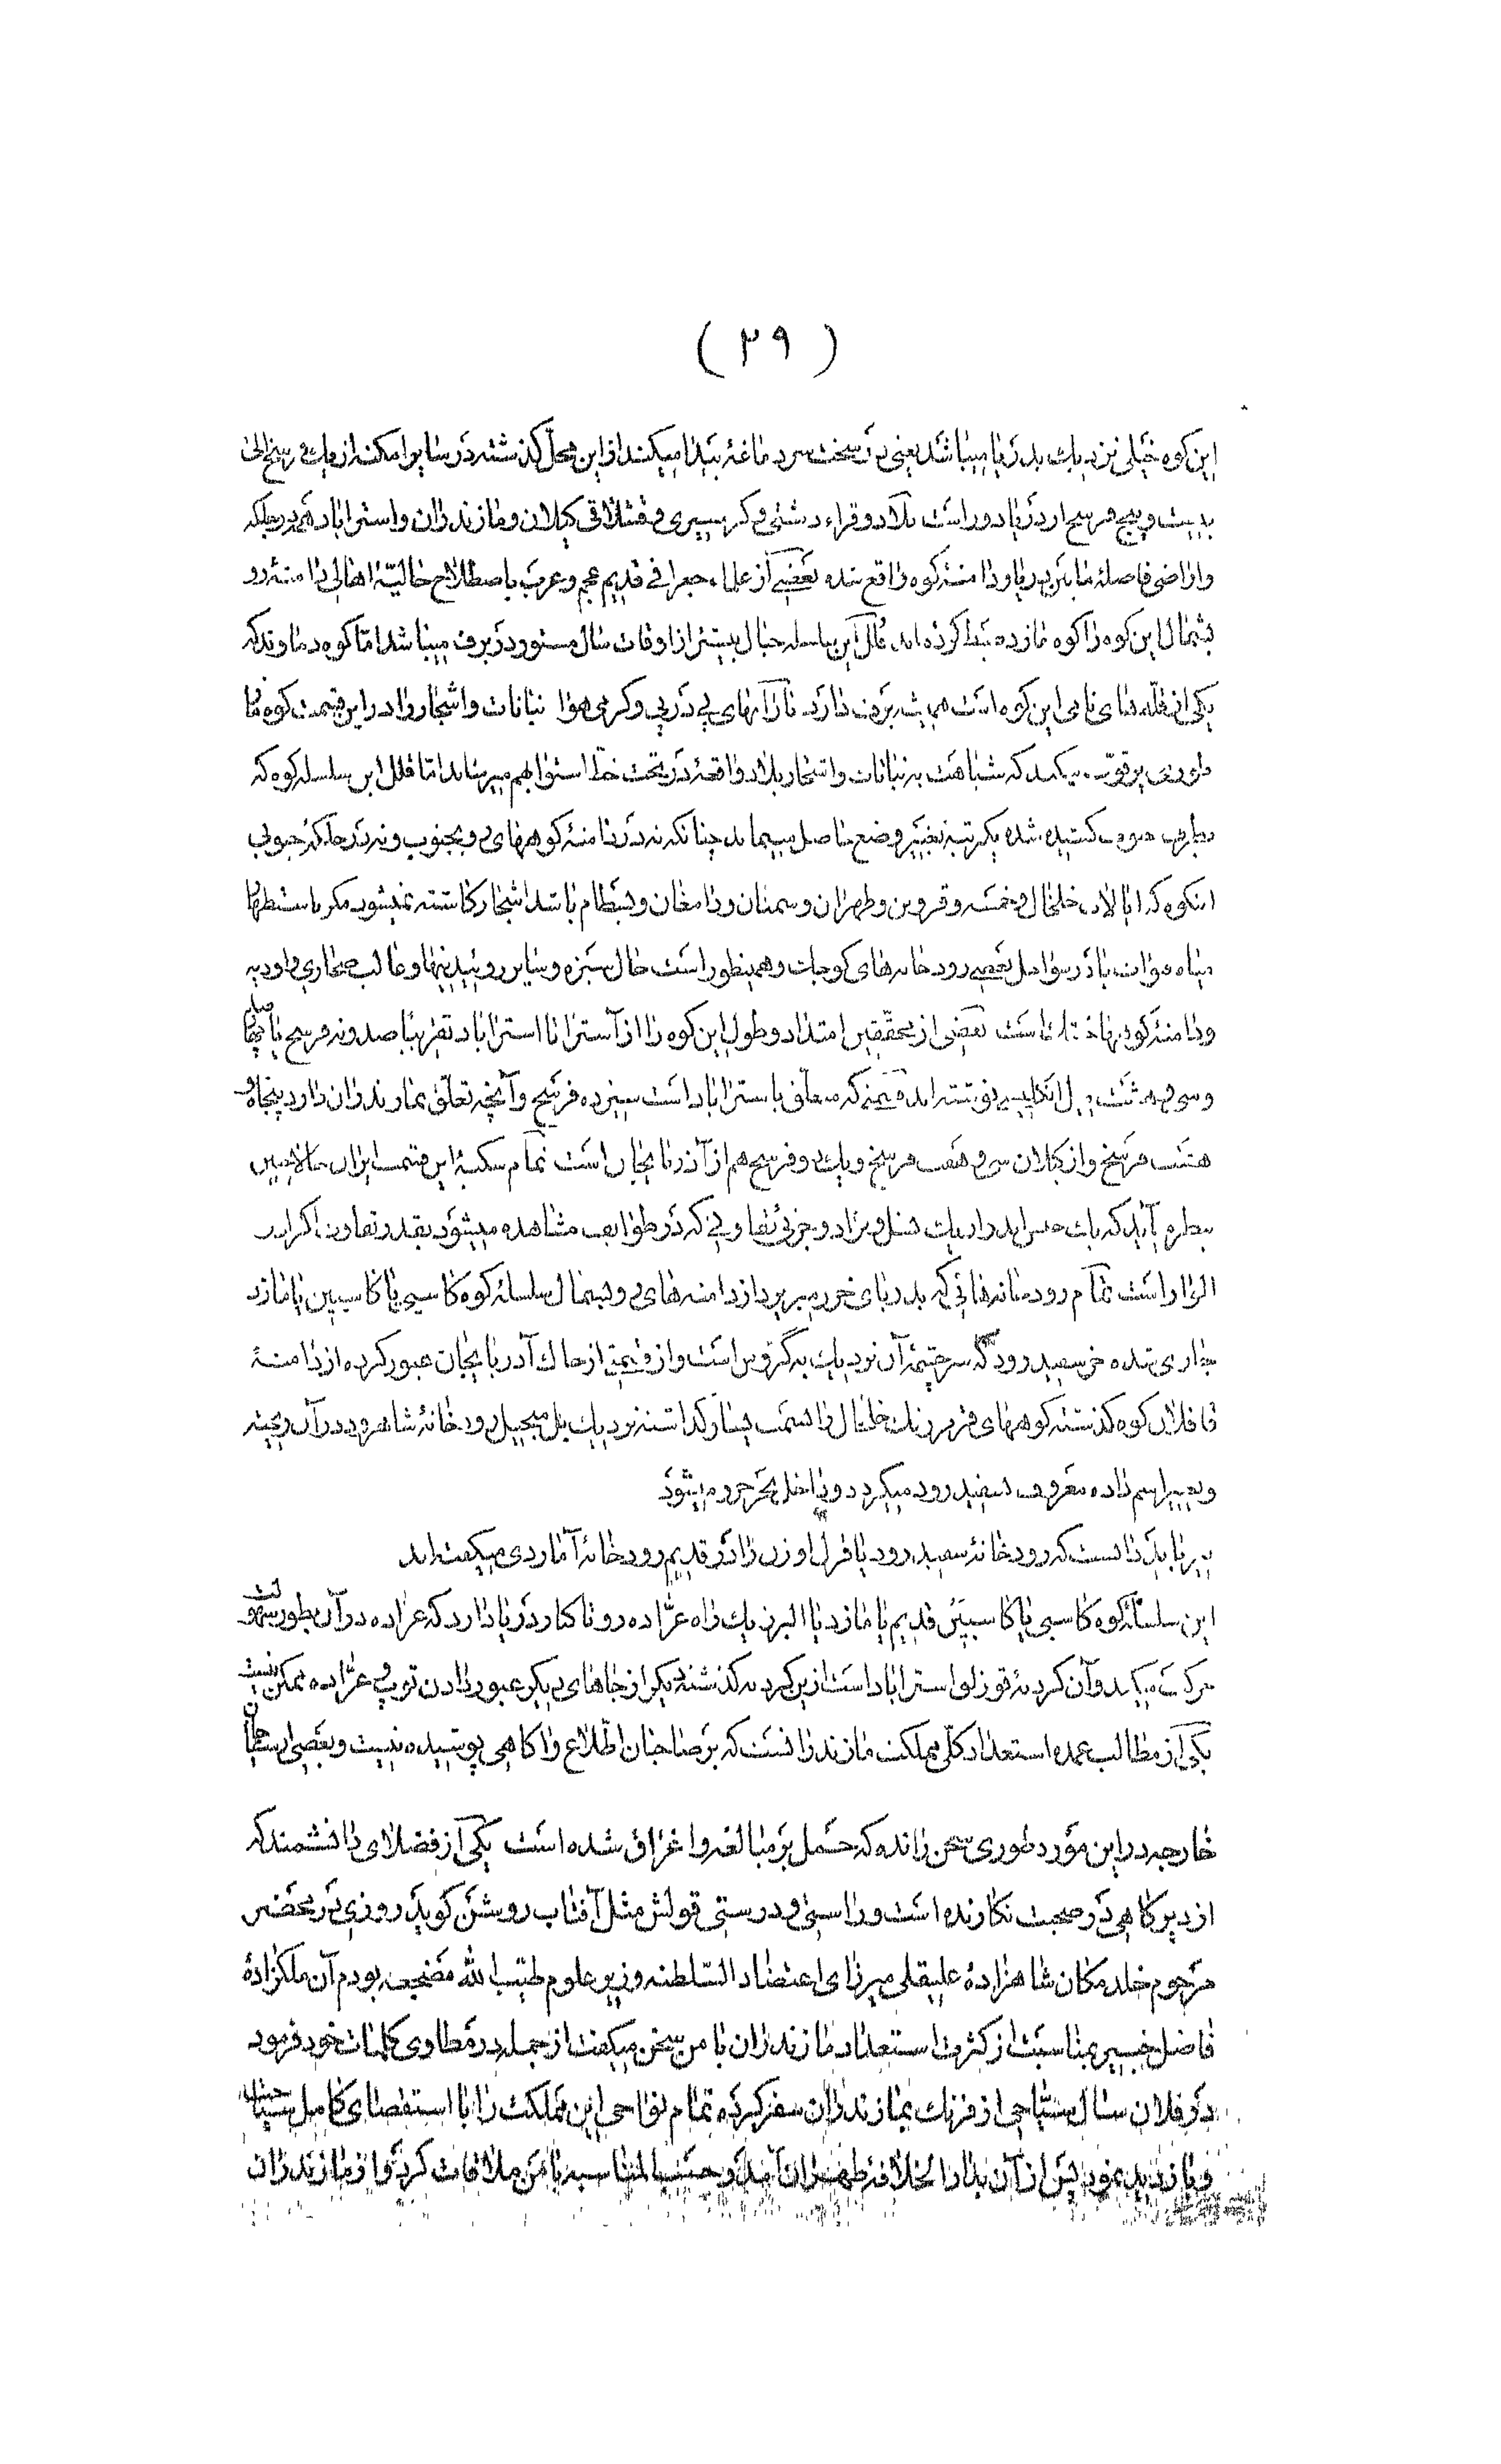 ( ۲۹ )
این کوه خیلی نزدیك بدریا میباشد یعنی در سخت سر دماغهٔ پیدا میکند از این محل گذشته در سایر امکنه از یك فرسخ الی
بیست و پنج فرسخ از دریا دور است بلاد و قراء دشتی و گرمسیری و قشلاقی گیلان و مازندران و استراباد همه در جلگه
و اراضی فاصلهٔ مابین دریا و دامنهٔ کوه واقع شده بعضی از علماء جغرافی قدیم عجم و عرب باصطلاح حالیهٔ اهالی دامنهٔ رو
بشمال این کوه را کوه مازد ضبط کرده اند قلل این سلسله جبال بیشتر از اوقات سال مستور در برف میباشد اما کوه دماوند که
یکی از قله های نامی این کوه است همیشه برف دارد بارانهای پی در پی و گرمی هوا نباتات و اشجار را در این قسمت کوه
طوری پرقوت میکند که شباهت به نباتات و اشجار بلاد واقعهٔ در تحت خط استوا بهم میرساند اما قلل این سلسله کوه که
بطرف جنوب کشیده شده یکمرتبه تغییر وضع حاصل مینماید چنانکه نه در دامنهٔ کوههای رو بجنوب و نه در جلگهٔ جنوبی
اینکوه که ایالات خلخال و خمسه و قزوین و طهران و سمنان و دامغان و بسطام باشد اشجار کاشته نمیشود مگر باستظهار
میاه قنوات یا در سواحل بعضی رودخانه های کوچك و همینطور است حال سبزه و سایر روئیدنیها و غالب صحاری و اودیه
و دامنهٔ کوهها خشك است بعضی از محققین امتداد و طول این کوه را از آستارا تا استراباد تقریباً صد و نه فرسخ یا چهار صد
و سی و هشت میل انگلیسی نوشته اند قسمتی که متعلق باستراباد است سیزده فرسخ و آنچه تعلق بمازندران دارد پنجاه و
هشت فرسخ و از گیلان سی و هفت فرسخ و یك دو فرسخ هم از آذربایجان است تمام سکنهٔ این قسمت ایران
بنظر می آید که یك جنس اند و از یك نسل و نژاد و جزئی تفاوتی که در طوایف مشاهده میشود بقدر تفاوت اکراد
الوار است تمام رودخانه هائی که بدریای خزر میریزد از دامنه های رو بشمال سلسلهٔ کوه کاسپی یا کاسپین یا مازد
جاری شده جز سفیدرود که سرچشمهٔ آن نزدیك به گروس است و از قسمتی از خاك آذربایجان عبور کرده از دامنهٔ
قافلان کوه گذشته کوههای قرمز رنگ خلخال را بسمت یسار گذاشته نزدیك پل منجیل رودخانهٔ شاهرود در آن ریخته
و تغییر اسم داده معروف بسفیدرود میگردد و داخل بحر خزر میشود
نیز باید دانست که رودخانهٔ سفیدرود یا قزل اوزن را در قدیم رودخانهٔ آماردی میگفته اند
این سلسلهٔ کوه کاسپی یا کاسپین قدیم یا مازد یا البرز یك راه عراده رو تا کنار دریا دارد که عراده در آن بطور سهولت
حرکت میکند و آن گردنهٔ قوزلو استراباد است از این گردنه گذشته دیگر از جاهای دیگر عبور دادن توپ و عراده ممکن نیست
یکی از مطالب عمده استعداد کلی مملکت مازندرانست که بر صاحبان اطلاع و اکاهی پوشیده نیست و بعضی از سیاحان
خارجه در این مورد طوری سخن رانده که حمل بر مبالغه و اغراق شده است یکی از فضلای دانشمند که
از دیرگاهی در صحبت نگارنده است و راستی و درستی قولش مثل آفتاب روشن گوید روزی در محضر
مرحوم خلد مکان شاهزاده علیقلی میرزای اعتضاد السلطنه وزیر علوم طیب الله مضجعه بودم آن ملکزادهٔ
فاضل خبیر بمناسبت از کثرت استعداد مازندران با من سخن میگفت از جمله در مطاوی کلمات خود فرمود
در فلان سال سیاحی از فرنك بمازندران سفر کرده تمام نواحی این مملکت را با استقصای کامل سیاحت
و بازدید نمود پس از آن بدار الخلافه طهران آمد و حسب المناسبه با من ملاقات کرد و از مازندران